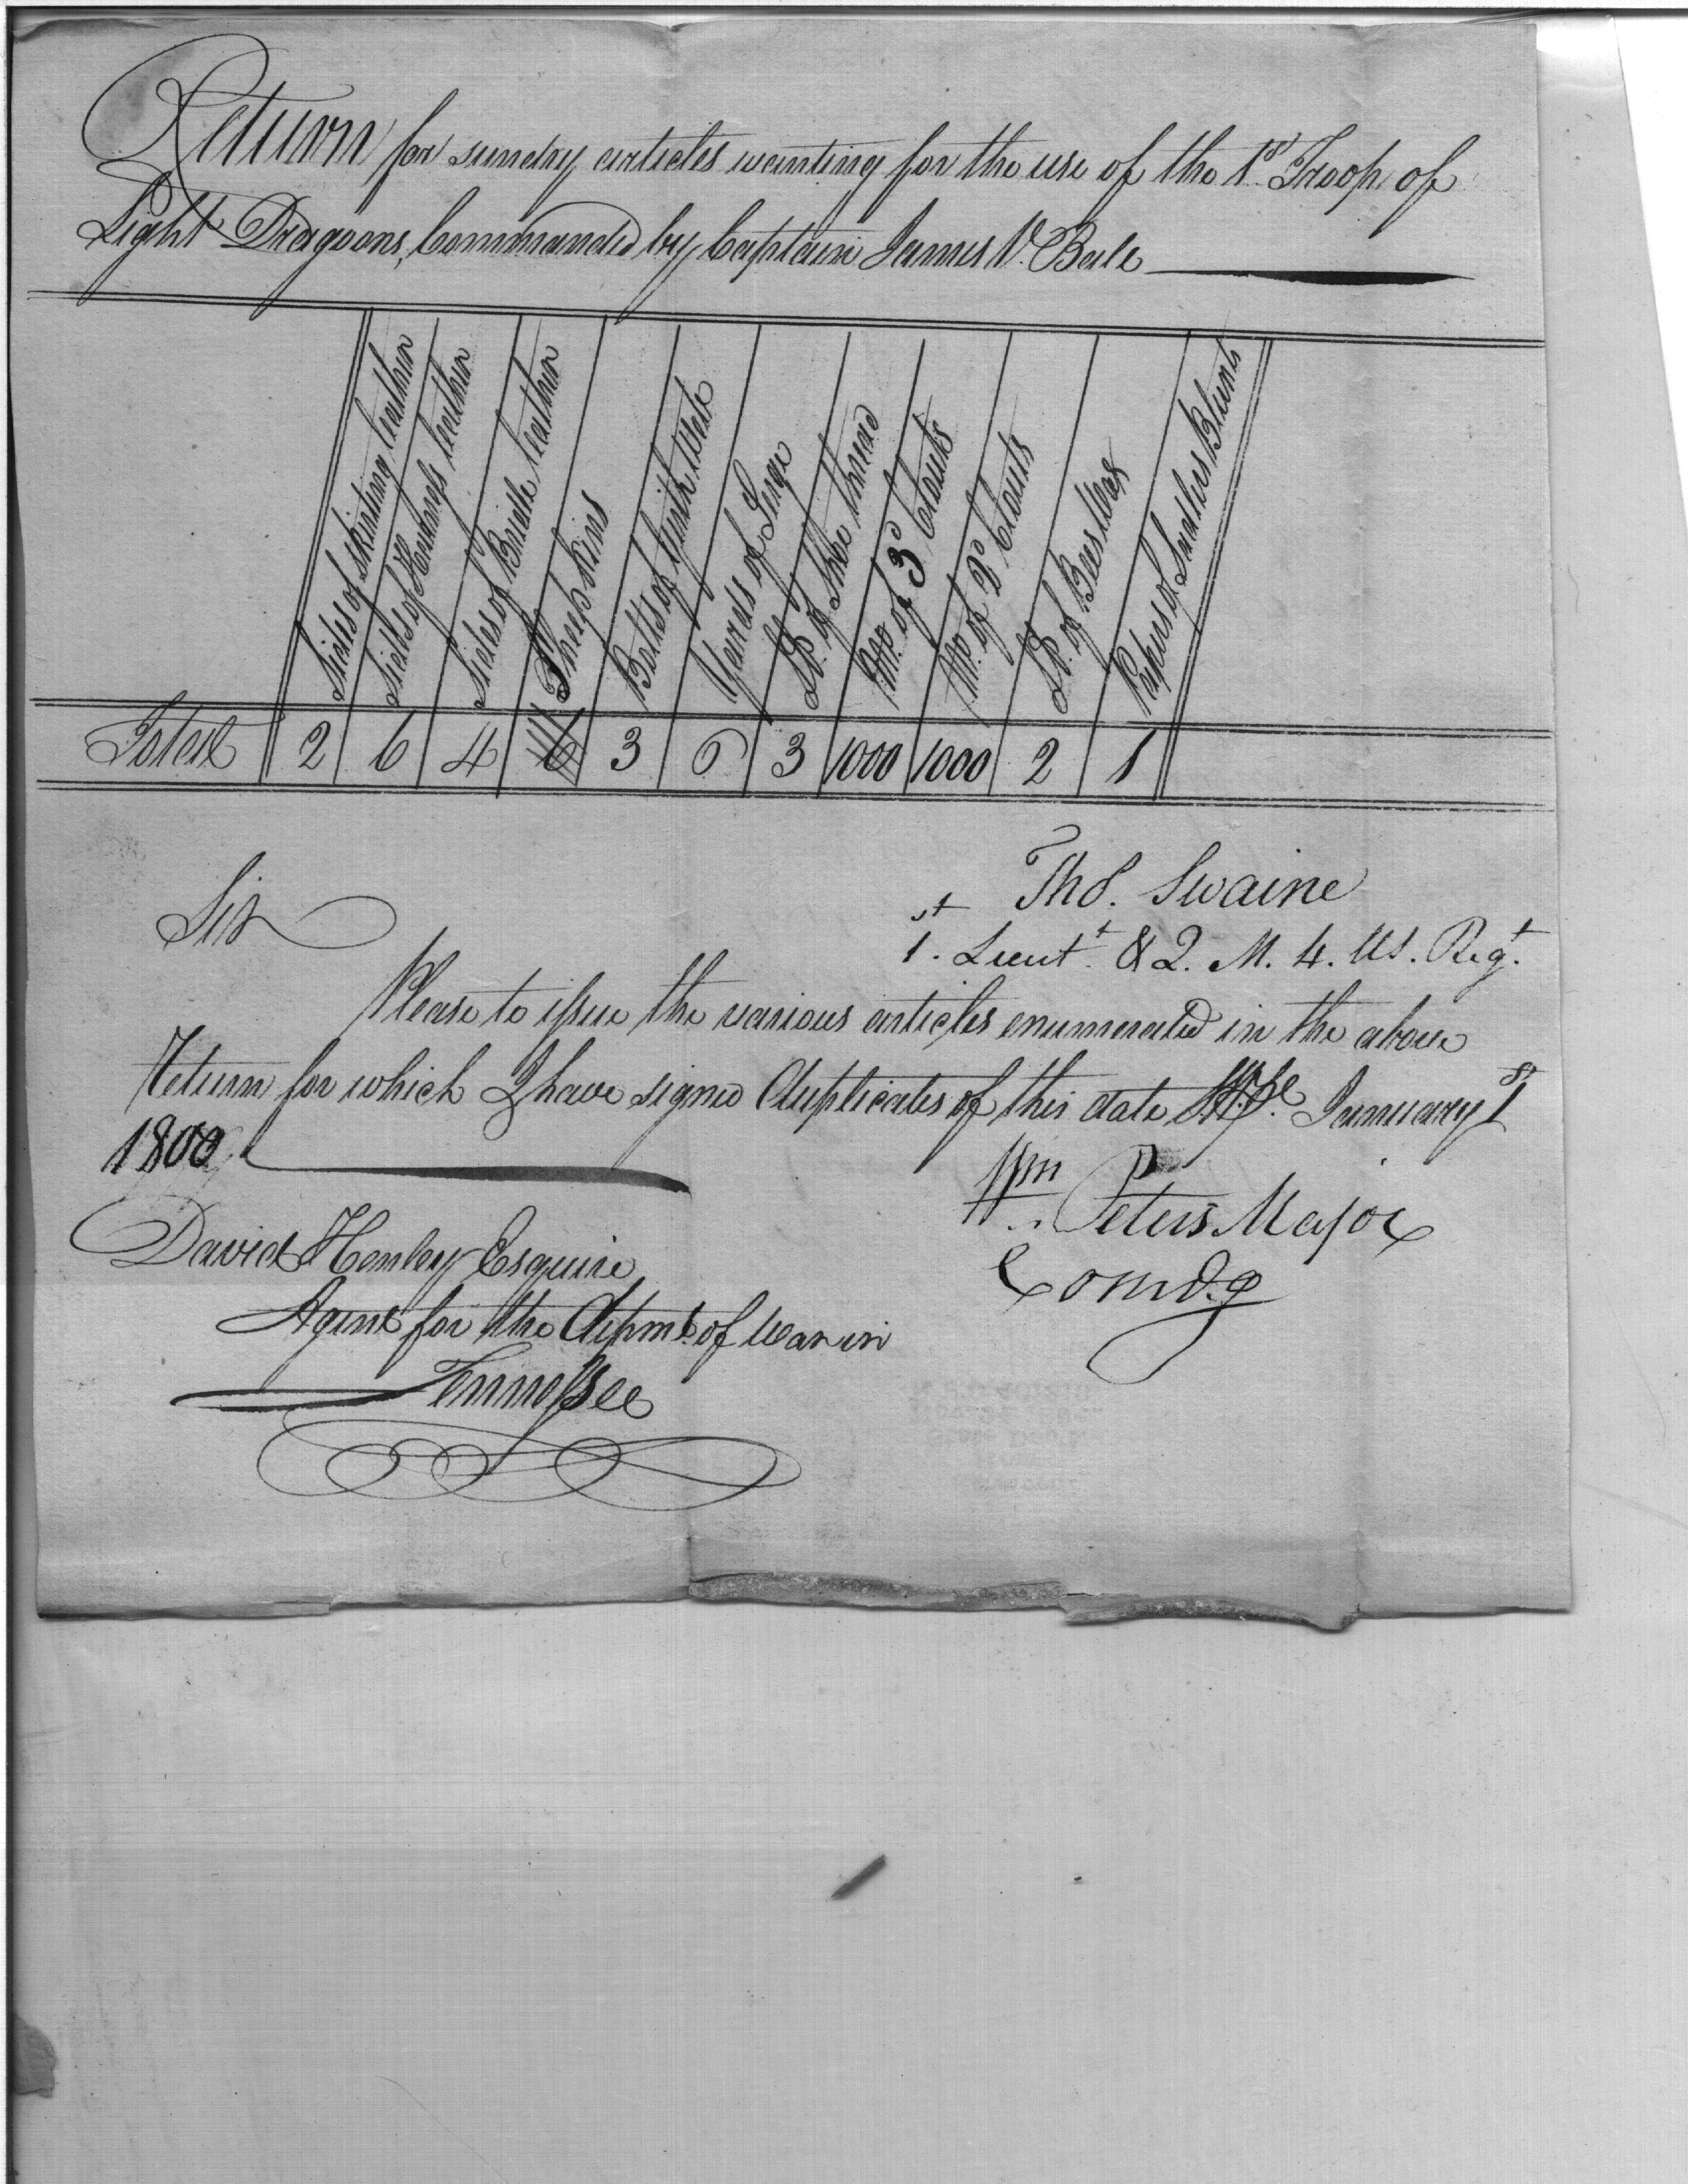 Return for sundry articles wanting for the use of the 1st Troop of
Light Dragoons, Commanded by Captain James V. Bale
Sides of skirting leather
Sides of Harness leather
Sides of Bridle leather
Sheep skins
Bolts of Girth Web
Yards of Serge
Lb. of Shoe thread
No. of 3d Clouts
No. of 2d Clouts
Lb. of Bees Wax
Papers of Sadlers Blunts
Total 2 6 4 6 3 6 3 1000 1000 2 1
Thos. Swaine
1st. Lieut. & Q. M. 4. US. Regt.
Sir
Please to issue the various articles enumerated in the above
Return for which I have signed Duplicates of this date January 1st
1800
Wm Peters Major
Comdg
David Henley Esquire
Agent for the Depmt. of War in
Tennessee